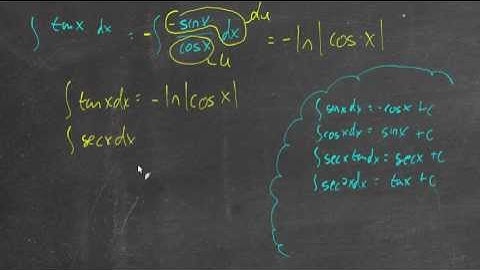 ∫ tanx dx = -∫ -sinx/cosx dx = -ln|cosx|
du
u
∫ tanxdx = -ln|cosx|
∫ secxdx
∫ sinxdx = -cosx +c
∫ cosxdx = sinx +c
∫ secxtanxdx = secx +c
∫ sec²xdx = tax +c